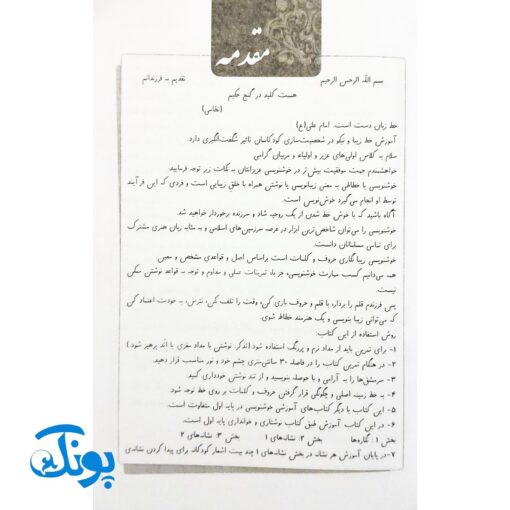 مقدمه
بسم الله الرحمن الرحیم تقدیم به فرزندانم
هست کلید در گنج حکیم
(نظامی)
خط زبان دست است. امام علی(ع)
آموزش خط زیبا و نیکو در شخصیت‌سازی کودکانمان تاثیر شگفت‌انگیزی دارد.
سلام به کلاس اولی‌های عزیز و اولیاء و مربیان گرامی
خواهشمندم جهت موفقیت بیش‌تر در خوشنویسی عزیزانتان به نکات زیر توجه فرمایید.
خوشنویسی یا خطاطی به معنی زیبانویسی یا نوشتن همراه با خلق زیبایی است و فردی که این فرآیند
توسط او انجام می‌گیرد خوش‌نویس است.
آگاه باشید که با خوش خط شدن از یک روحیه شاد و سرزنده برخوردار خواهید شد.
خوشنویسی را می‌توان شاخص‌ترین ابزار در عرصه سرزمین‌های اسلامی و به مثابه زبان هنری مشترک
برای تمامی مسلمانان دانست.
خوشنویسی زیبا نگاری حروف و کلمات است براساس اصل و قواعدی مشخص و معین
همه می‌دانیم کسب مهارت خوشنویسی، جز با تمرینات عملی و مداوم و توجه به قواعد نوشتن ممکن
نیست.
پس فرزندم قلم را بردار، با قلم و حروف بازی کن، وقت را تلف نکن، نترس، به خودت اعتماد کن
که می‌توانی زیبا بنویسی و یک هنرمند خطاط شوی.
روش استفاده از این کتاب:
۱- برای تمرین باید از مداد نرم و پررنگ استفاده شود (تذکر: نوشتن با مداد مغزی یا اتد پرهیز شود.)
۲- در هنگام تمرین کتاب را در فاصله ۳۰ سانتی‌متری چشم خود و نور مناسب قرار دهید.
۳- سرمشق‌ها را به آرامی و با حوصله بنویسید و از تند نوشتن خودداری کنید.
۴- به خط زمینه اصلی و چگونگی قرار گرفتن حروف و کلمات بر روی خط توجه شود.
۵- این کتاب با دیگر کتاب‌های آموزشی خوشنویسی در پایه اول متفاوت است.
۶- در این کتاب آموزش طبق کتاب نوشتاری و خوانداری پایه اول است.
بخش ۱: نگاره‌ها بخش ۲: نشانه‌های ۱ بخش ۳: نشانه‌های ۲
۷-در پایان آموزش هر نشانه در بخش نشانه‌های ۱ چند بیت اشعار کودکانه برای پیدا کردن نشانه‌ی
پونک